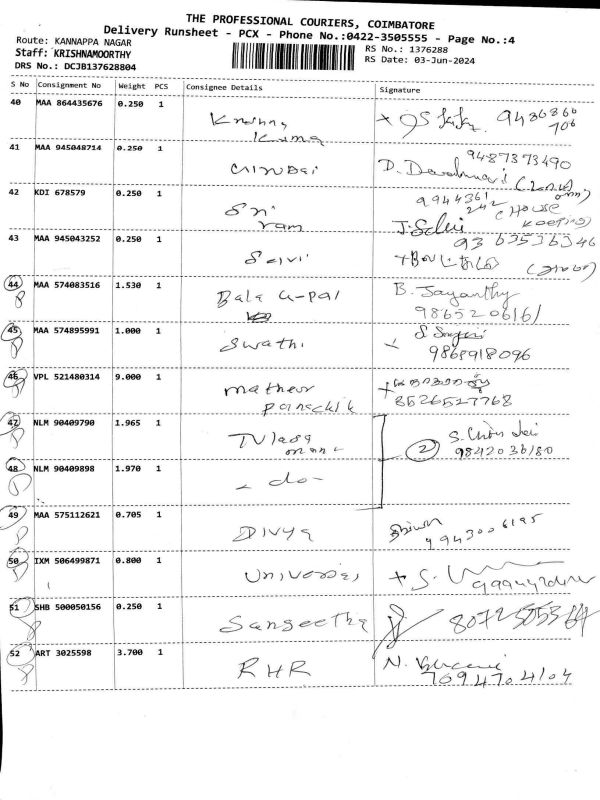 THE PROFESSIONAL COURIERS, COIMBATORE
Delivery Runsheet - PCX - Phone No.:0422-3505555 - Page No.:4
Route: KANNAPPA NAGAR
Staff: KRISHNAMOORTHY
DRS No.: DCJB137628804
RS No.: 1376288
RS Date: 03-Jun-2024
S No Consignment No Weight PCS Consignee Details Signature
40 MAA 864435676 0.250 1 Krishna
Kuma
9486866
706
41 MAA 945048714 0.250 1
9487373490
42 KDI 678579 0.250 1 Sri
ram
9944361
242 (House
Keeping)
43 MAA 945043252 0.250 1 Selvi 9363536346
44 MAA 574083516 1.530 1 Bala G-pal B. Jayanthy
9865206161
45 MAA 574895991 1.000 1 Swathi
9868918096
46 VPL 521480314 9.000 1 Mathew
8526527768
47 NLM 90409790 1.965 1
2
9842036180
48 NLM 90409898 1.970 1 - do -
49 MAA 575112621 0.705 1 Divya
9943006195
50 IXM 506499871 0.800 1
51 SHB 500050156 0.250 1 Sangeetha
52 ART 3025598 3.700 1 RHR
7094704104